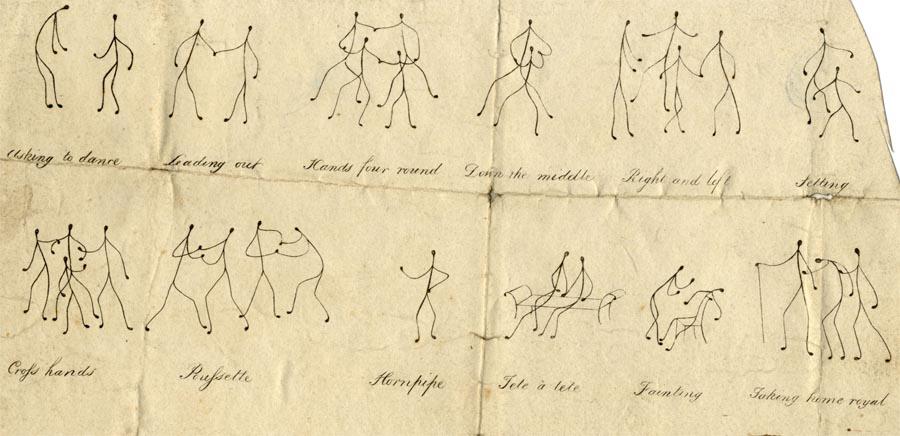 Asking to dance
Leading out
Hands four round
Down the middle
Right and left
Setting
Cross hands
Pussette
Hornpipe
Tete à tete
Fainting
Taking home royal